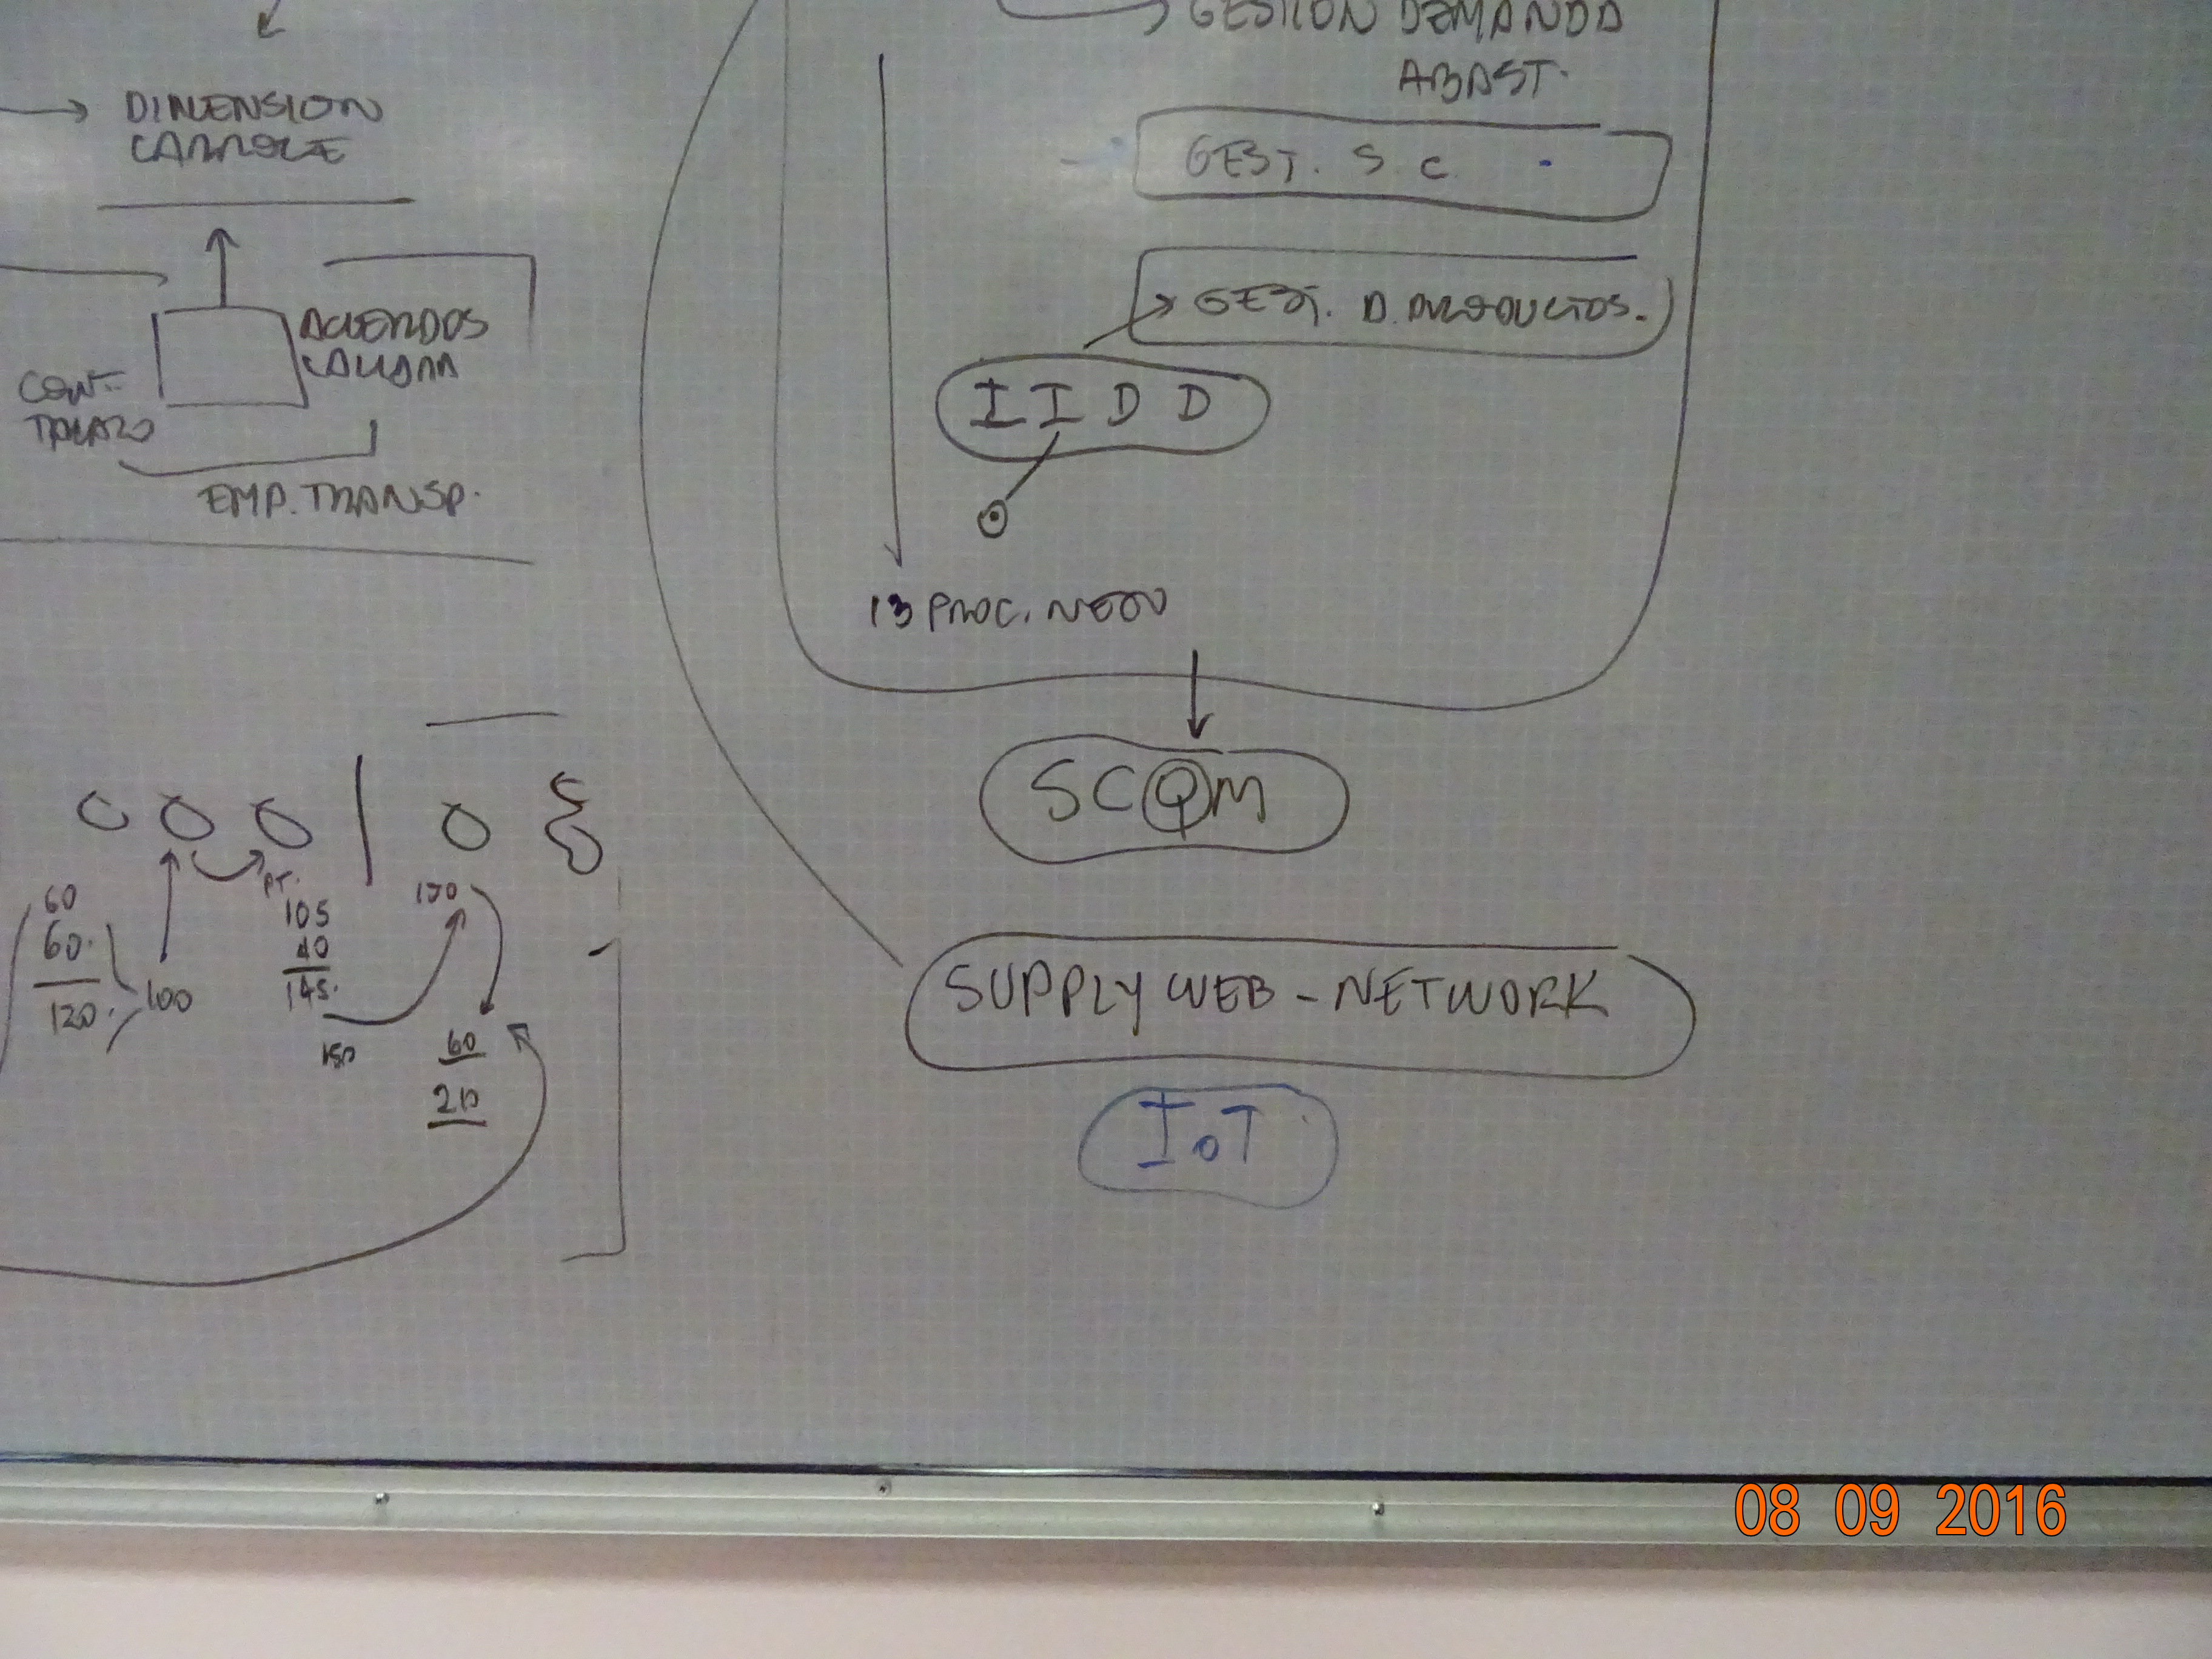 DIMENSION
ACUERDOS
CON-
TRATO
EMP. TRANSP.
60
60.
120.
100
PT.
105
40
145.
150
150
60
210
GESTION DEMANDA
ABAST.
GEST. S C
GEST. D. PRODUCTOS.
I I D D
13 PROC. NEGO
SCQM
SUPPLY WEB - NETWORK
IoT
08 09 2016